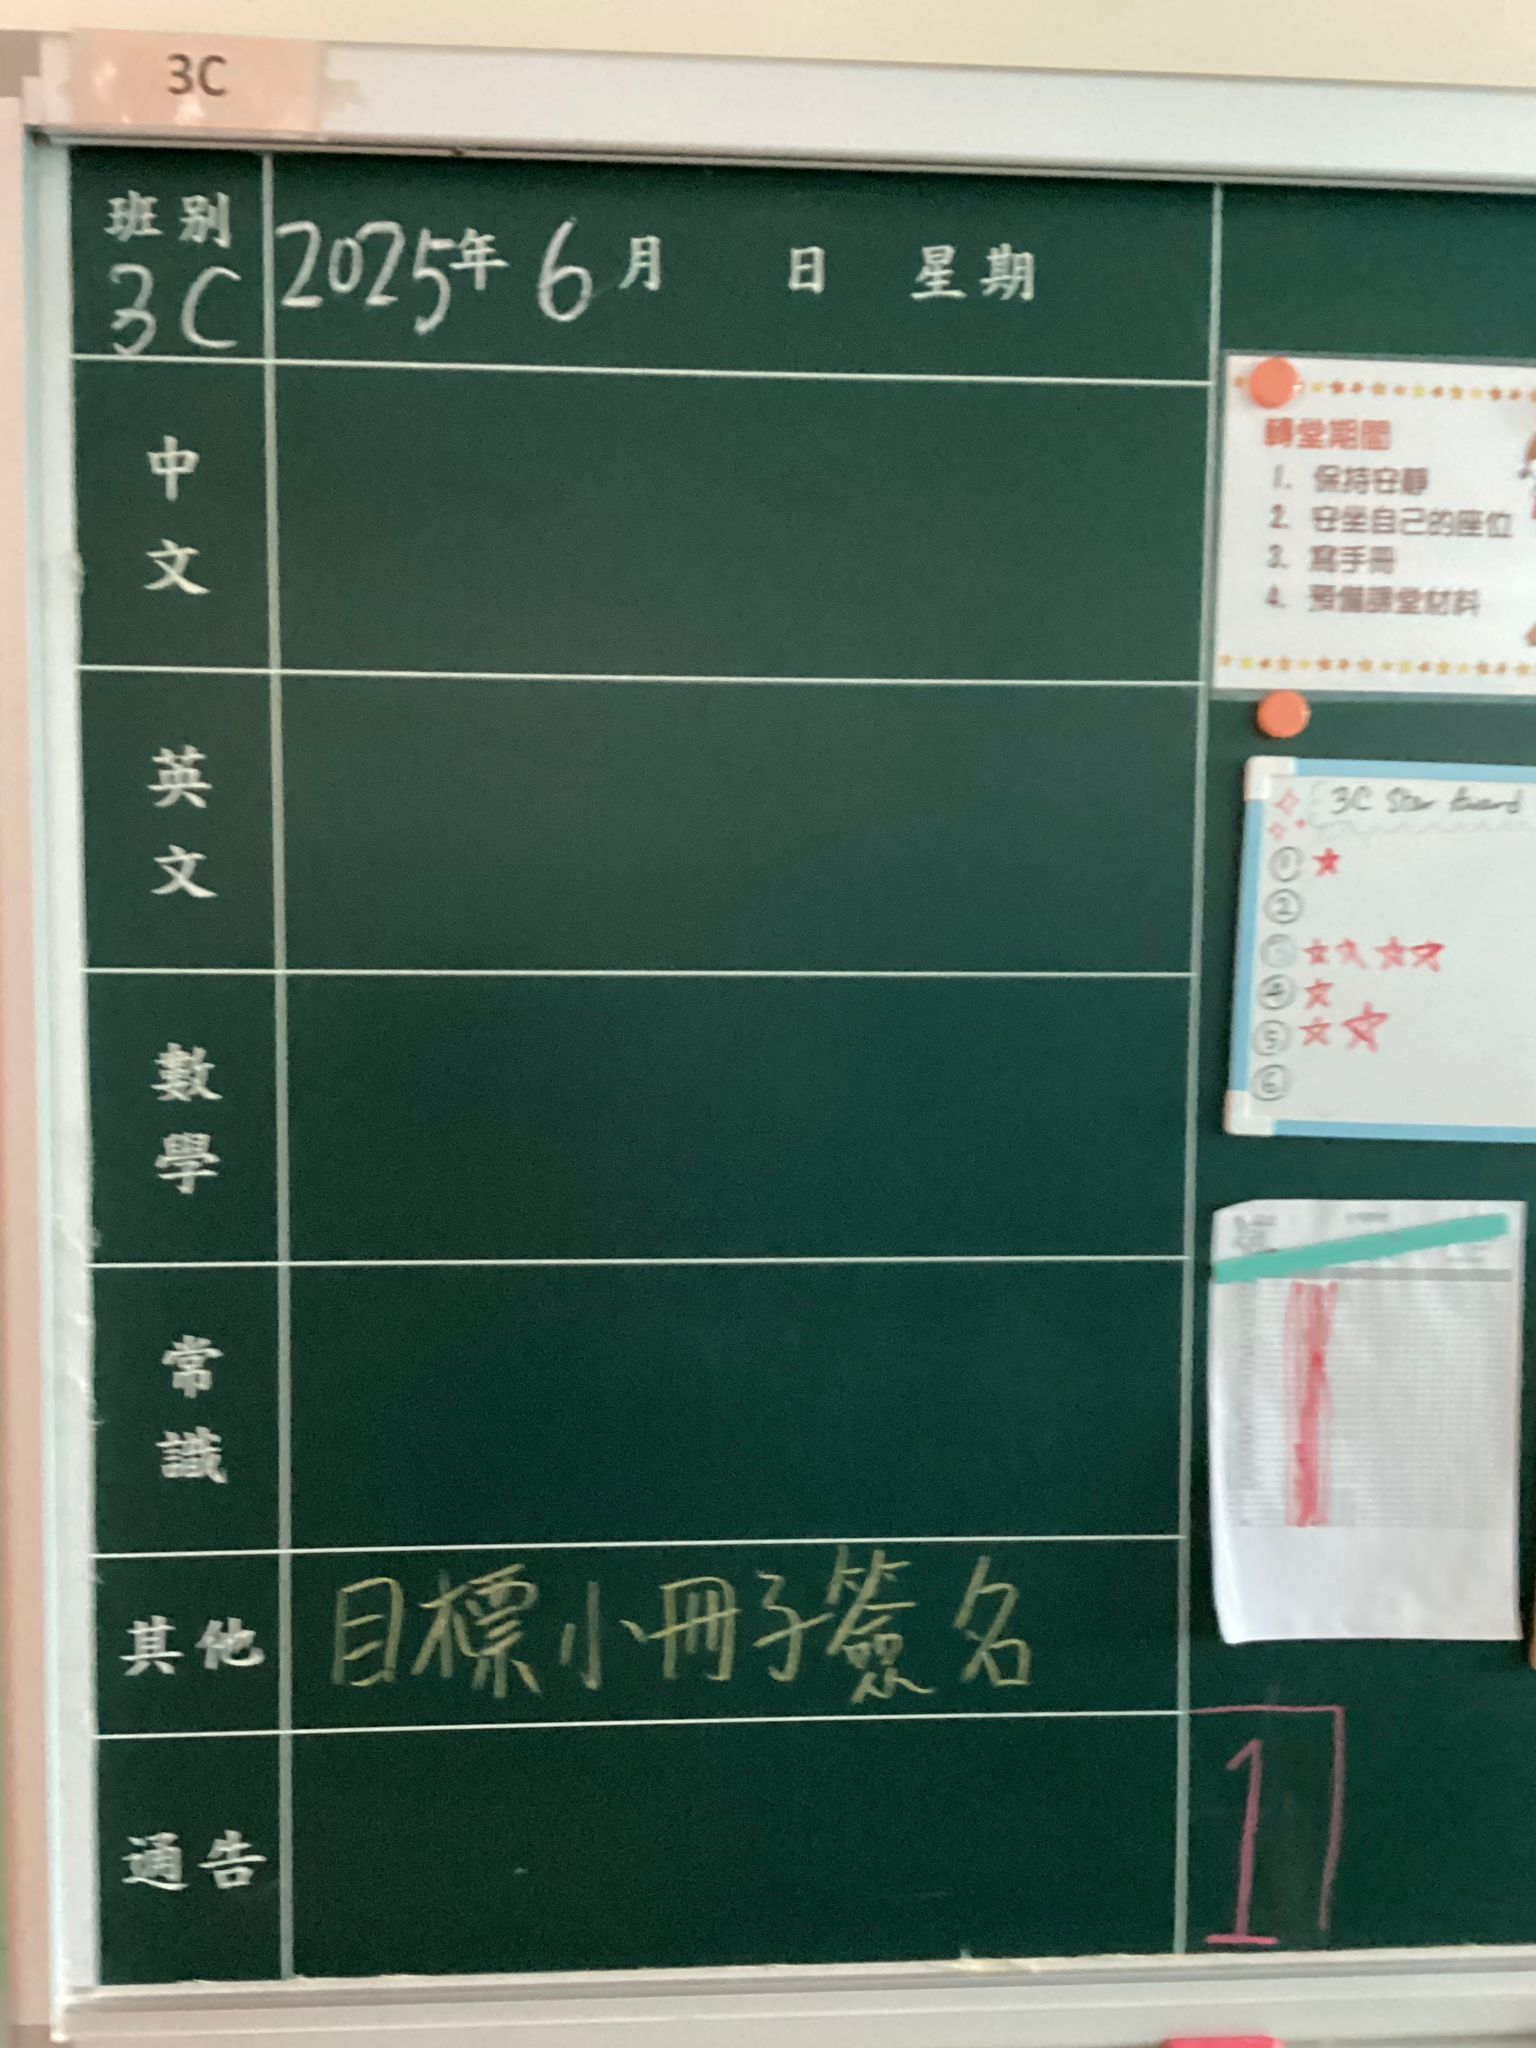 3C
班別 2025年 6月 日 星期
3C
中文
英文
數學
常識
其他 目標小冊子簽名
通告
轉堂期間
1. 保持安靜
2. 安坐自己的座位
3. 寫手冊
4. 預備課堂材料
3C Star Award
①
②
③
④
⑤
⑥
1